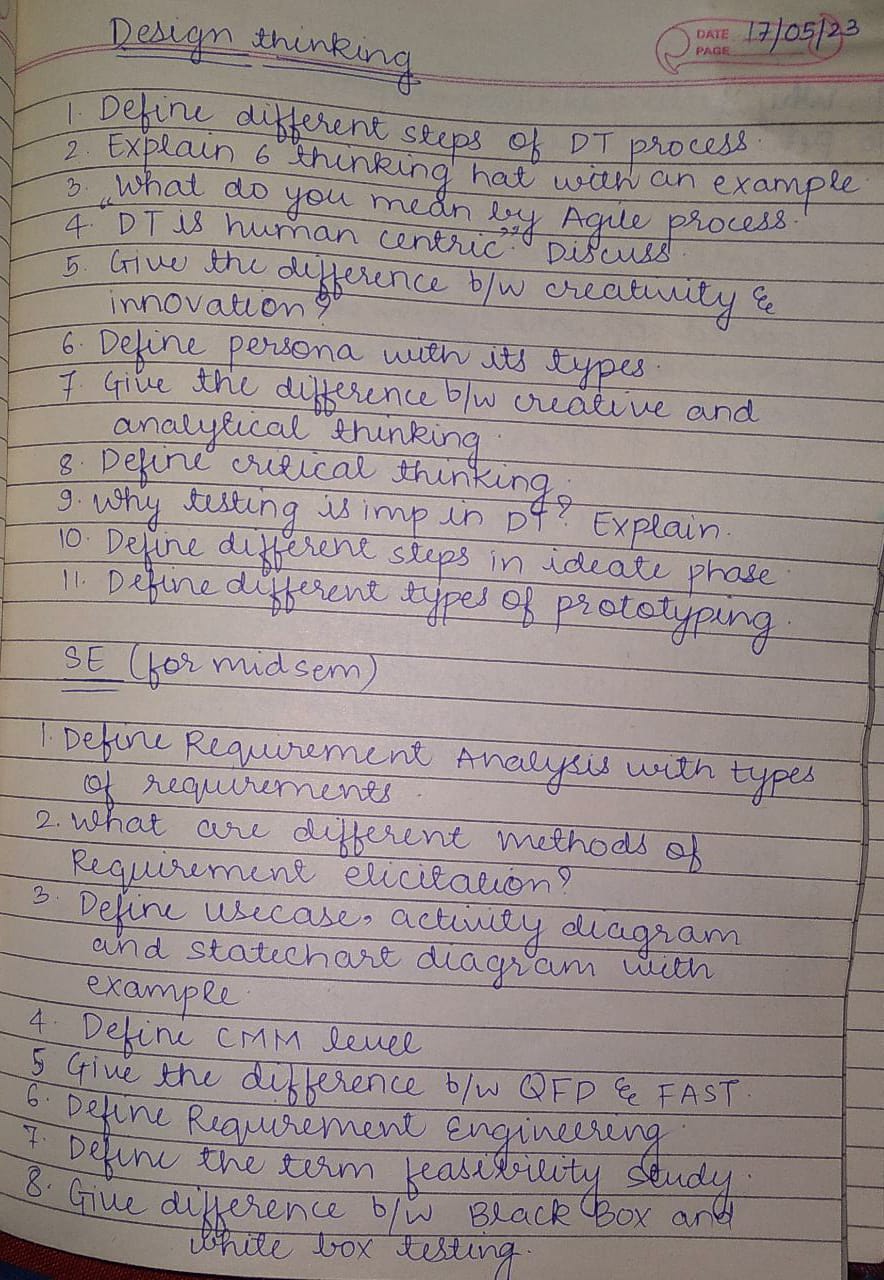 Design thinking
DATE 17/05/23
PAGE
1. Define different steps of DT process.
2. Explain 6 thinking hat with an example
3. What do you mean by Agile process.
4. "DT is human centric". Discuss
5. Give the difference b/w creativity &
innovation?
6. Define persona with its types.
7. Give the difference b/w creative and
analytical thinking.
8. Define critical thinking.
9. Why testing is imp in DT? Explain.
10. Define different steps in ideate phase.
11. Define different types of prototyping.
SE (for midsem)
1. Define Requirement Analysis with types
of requirements.
2. What are different methods of
Requirement elicitation?
3. Define usecase, activity diagram
and statechart diagram with
example.
4. Define CMM level
5 Give the difference b/w QFD & FAST.
6. Define Requirement Engineering.
7. Define the term feasibility study.
8. Give difference b/w Black Box and
white box testing.